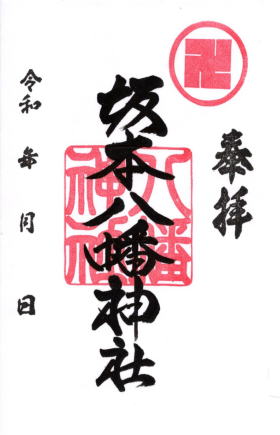 奉拝
坂本八幡神社
八幡
神社
令和 年 月 日